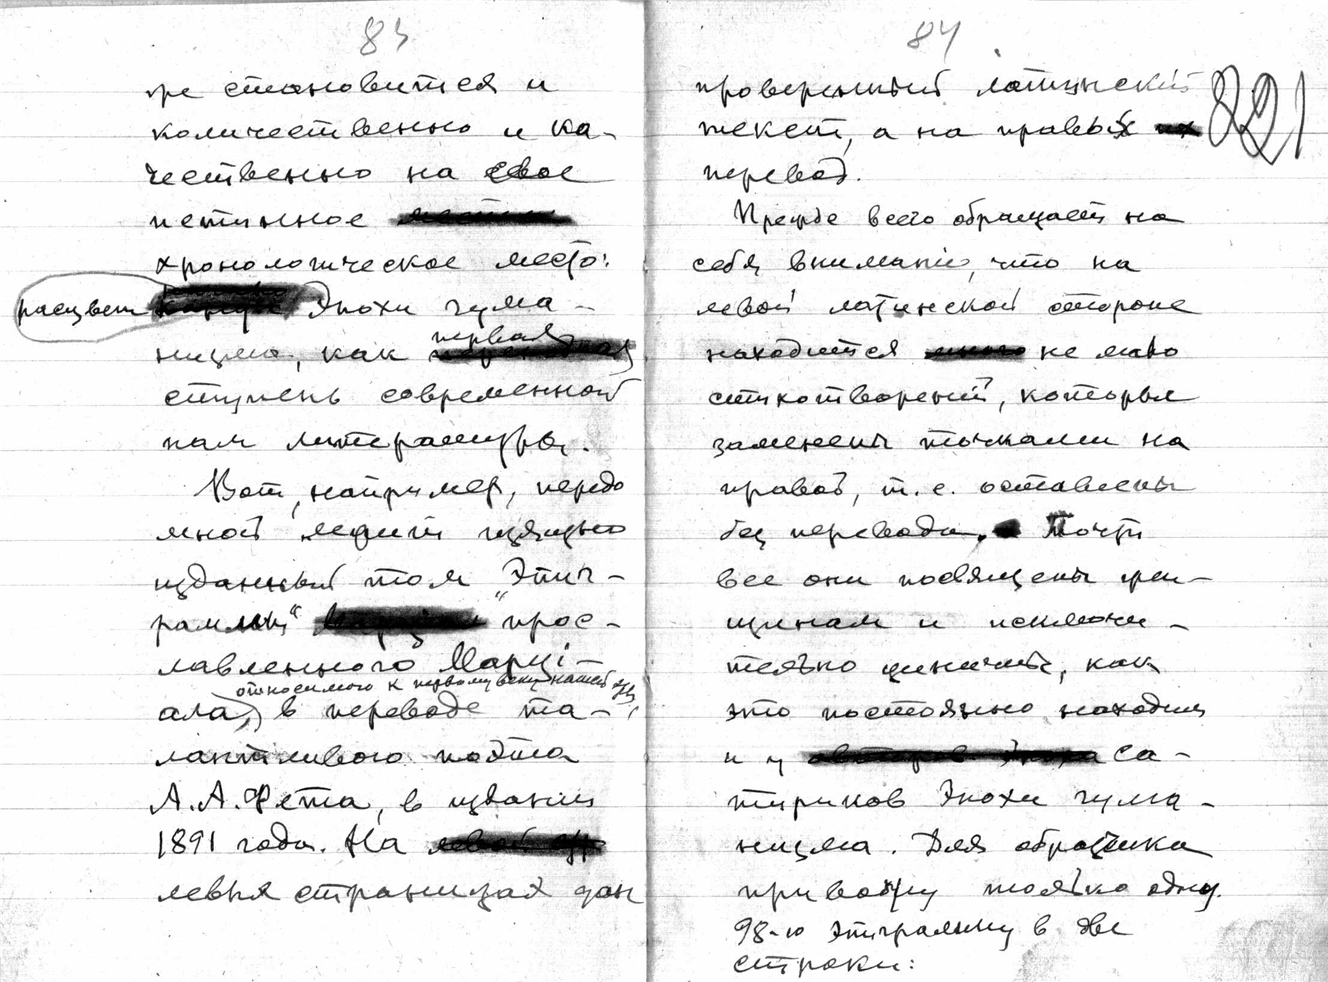 83
же становится и
количественно и ка-
чественно на свое
истинное
хронологическое место:
расцвет Эпохи гума-
низма, как первая
ступень современной
нам литературы.
Вот, например, передо
мной лежит изящно
изданный том "Эпиг-
раммы" "прос-
лавленного Марці-
относимого к первому веку нашей эры,
ала, в переводе та-
лантливого поэта
А.А. Фета, в издании
1891 года. На
левых страницах дан
84
221
проверенный латинский
текст, а на правых
перевод.
Прежде всего обращает на
себя внимание, что на
левой латинской стороне
находится не мало
стихотворений, которые
заменены точками на
правой, т.е. оставлены
без перевода. Почти
все они посвящены жен-
щинам и исключи-
тельно циничны, как
это постоянно находим
и у са-
тириков Эпохи гума-
низма. Для образчика
привожу только одну
98-ю эпиграмму в две
строки: